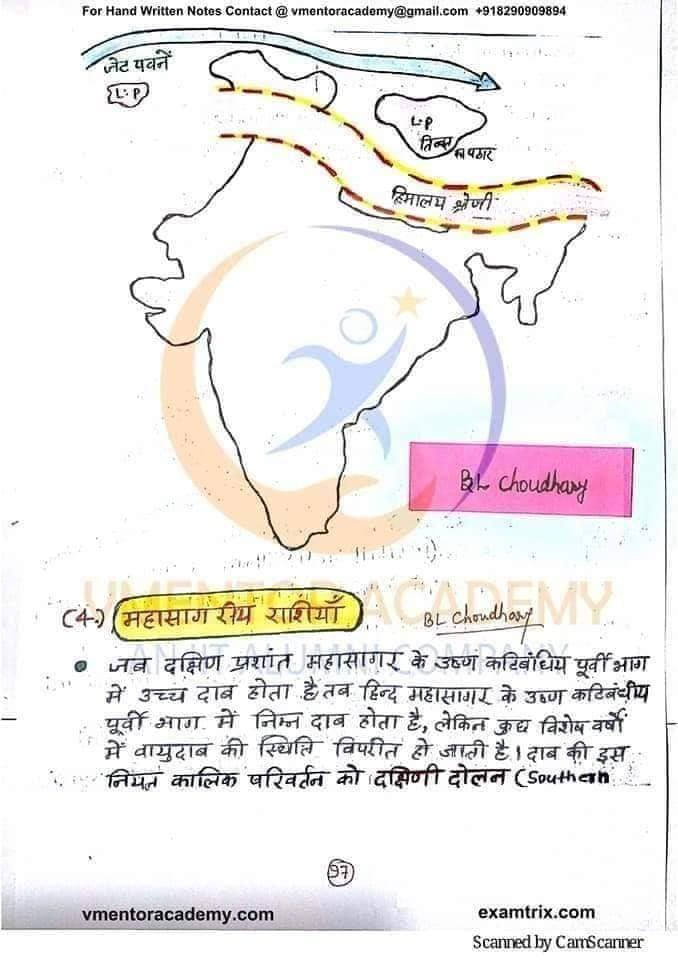 For Hand Written Notes Contact @ vmentoracademy@gmail.com +918290909894
जेट पवनें
L:P
L:P
तिब्बत
का पठार
हिमालय श्रेणी
BL Choudhary
VMENTOR ACADEMY
(4.) महासागरीय राशियाँ
BL Choudhary
ANKIT ALUMNI COMPANY
• जब दक्षिण प्रशांत महासागर के उष्ण कटिबंधिय पूर्वी भाग
में उच्च दाब होता है तब हिन्द महासागर के उष्ण कटिबंधीय
पूर्वी भाग में निम्न दाब होता है, लेकिन कुछ विशेष वर्षों
में वायुदाब की स्थिति विपरीत हो जाती है। दाब की इस
नियत कालिक परिवर्तन को दक्षिणी दोलन (Southern
97
vmentoracademy.com
examtrix.com
Scanned by CamScanner